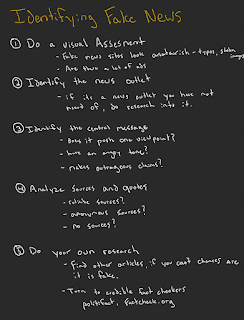 Identifying Fake News
① Do a visual Assesment
- Fake news sites look amateurish - typos, stolen images
- Are there a lot of ads
② Identify the news outlet
- if its a news outlet you have not heard of, do research into it.
③ Identify the central message
- Does it push one viewpoint?
- have an angry tone?
- makes outrageous claims?
④ Analyze sources and quotes
- reliable sources?
- anonymous sources?
- no sources?
⑤ Do your own research
- Find other articles, if you can't chances are
it is fake.
- Turn to credible fact checkers
politifact, factcheck.org